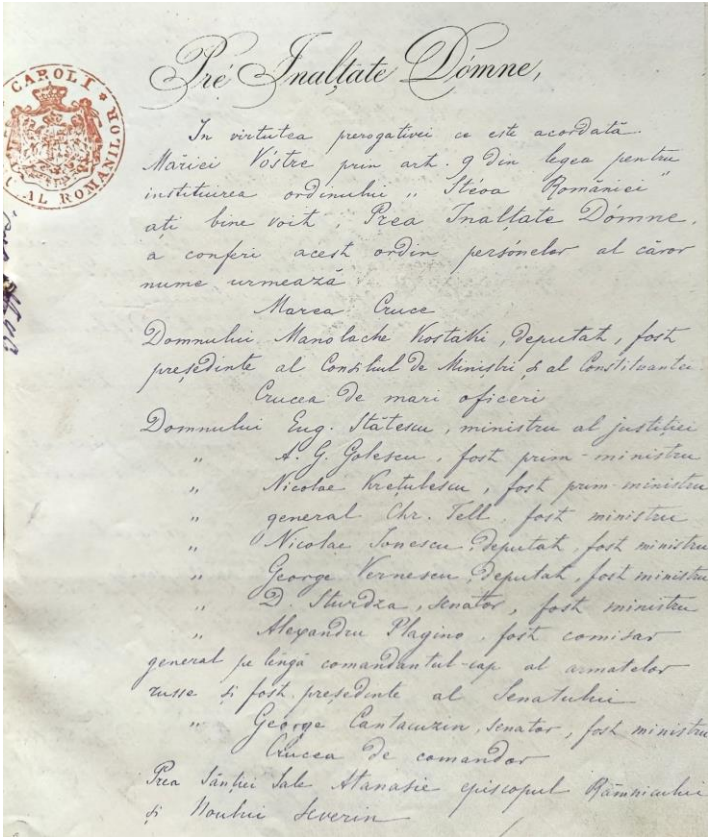 Pré Inalțate Dómne,
CAROL I
AL ROMANILOR
In virtutea prerogativei ce este acordată
Măriei Vóstre prin art. 9 din legea pentru
instituirea ordinului „Stéoa României”
ați bine voit, Prea Inalțate Dómne,
a conferi acest ordin persónelor al căror
nume urmează
Marea Cruce
Domnului Manolache Kostaki, deputat, fost
președinte al Consiliul de Miniștri și al Constituantei
Crucea de mari oficeri
Domnului Eug. Stătescu, ministru al justiției
„ A. G. Golescu, fost prim-ministru
„ Nicolae Krețulescu, fost prim-ministru
„ general Chr. Tell, fost ministru
„ Nicolae Ionescu, deputat, fost ministru
„ George Vernescu, deputat, fost ministru
„ D. Sturdza, senator, fost ministru
„ Alexandru Plagino, fost comisar
general pe lîngă comandantul-cap al armatelor
russe și fost președinte al Senatului
„ George Cantacuzin, senator, fost ministru
Crucea de comandor
Prea Sânției Sale Atanasie episcopul Râmnicului
și Noului Severin